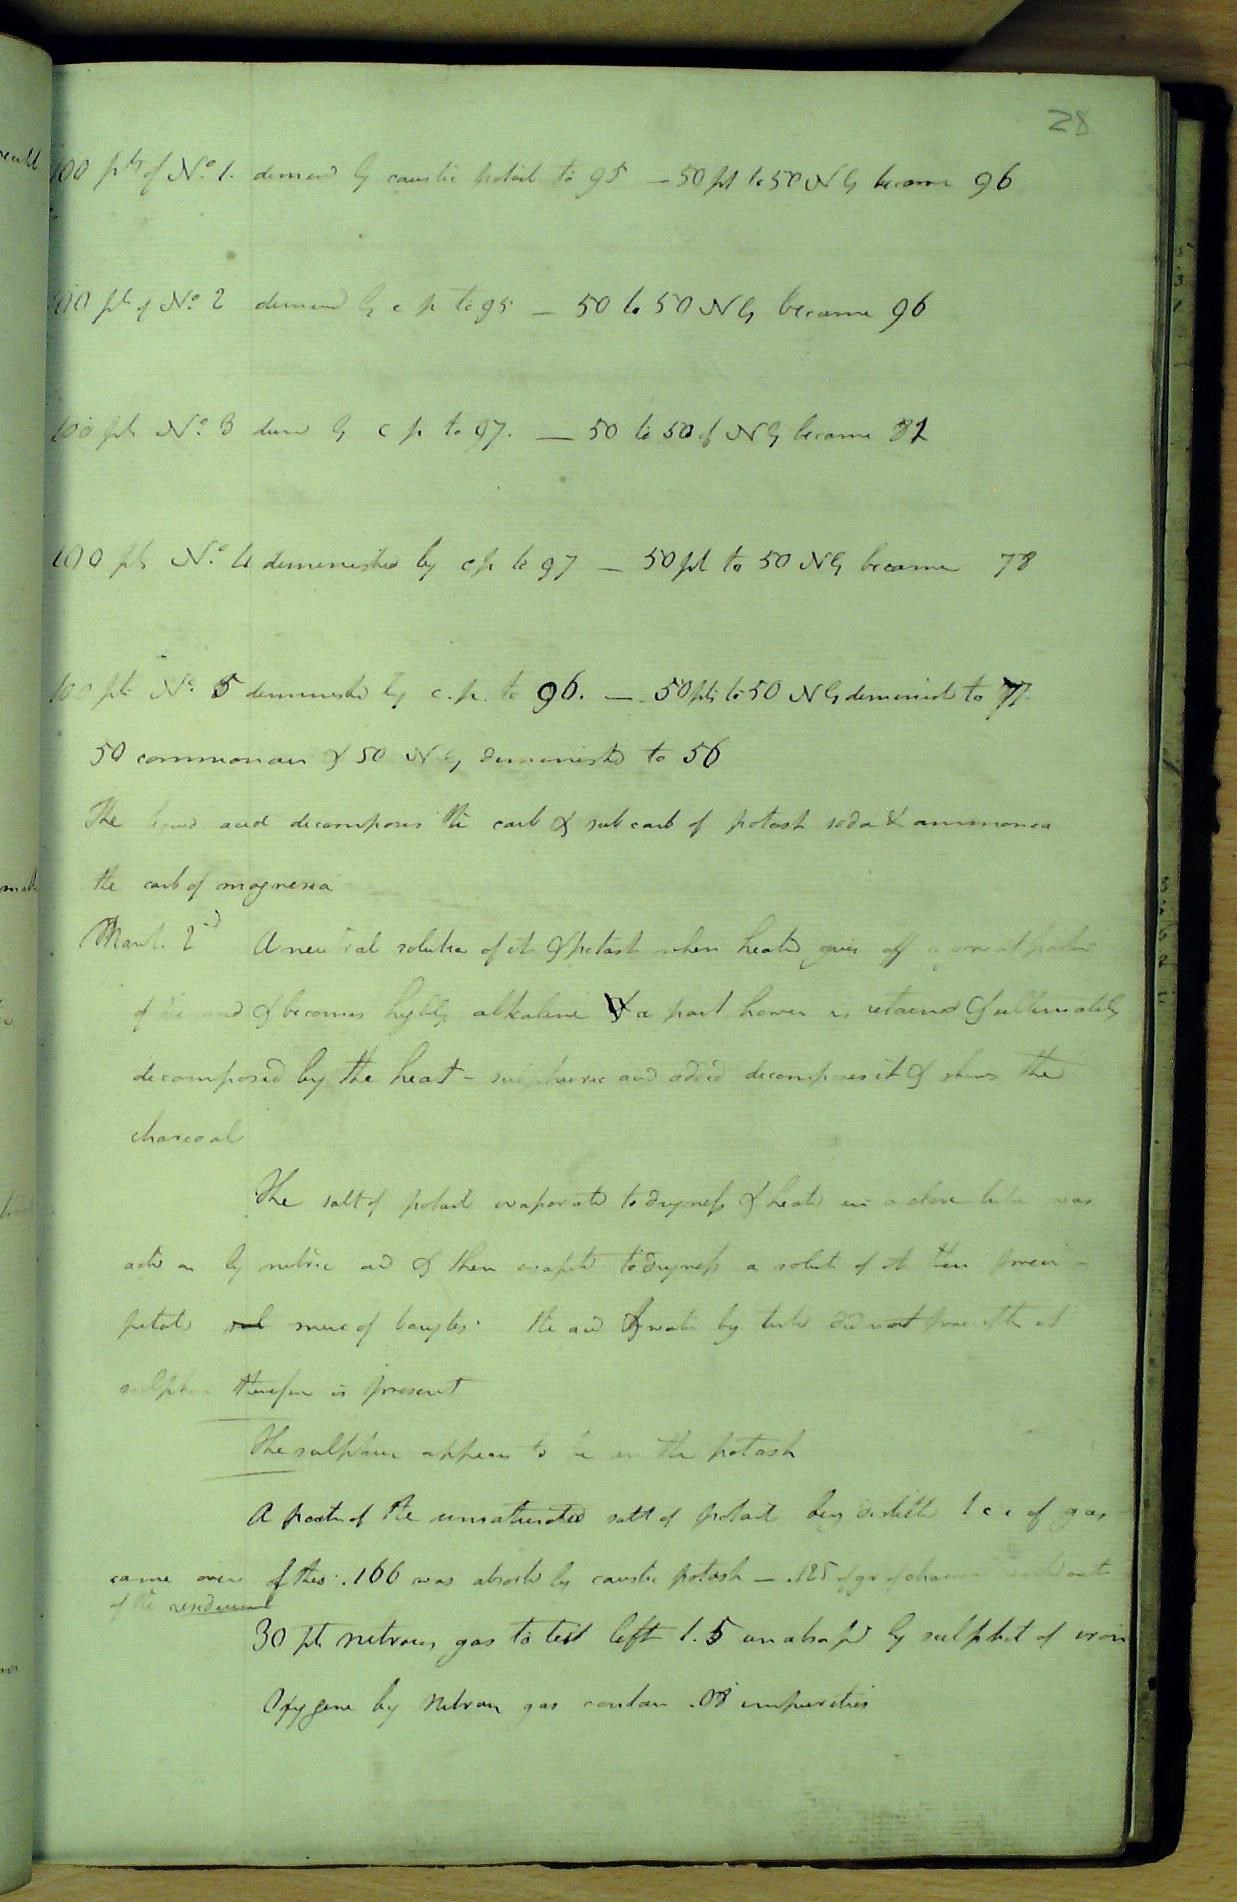 28
100 pts of No. 1. dimind by caustic potash to 95 — 50 pt to 50 N G became 96
100 pt of No. 2 dimind by c p to 95 — 50 to 50 N G became 96
100 pts No. 3 dimd by c p to 97. — 50 to 50 of N G became 82
100 pts No. 4 diminished by c p to 97 — 50 pt to 50 N G became 78
100 pts No. 5 diminishd by c. p. to 96. — 50 pts to 50 N G diminisd to 77.
50 common air & 50 N G diminishd to 56
The acid decomposes the carb & sub carb of potash soda & ammonia
the carb of magnesia
March 2nd A neutral solution of it & potash when heated gives off a great portion
of acid & becomes highly alkaline & a part however is retained & ultimately
decomposed by the heat - sulphuric acid added decomposes it & shews the
charcoal
The salt of potash evaporated to dryness & heated in a close tube was
acted on by nitric acid & then evaptd to dryness a solut of it then precip-
itated mur of barytes. the acid & water by tests did not
sulphur therefore is present
The sulphur appears to be in the potash
A portion of the unsaturated salt of potash being distilld 1 c i of gas
came over of this .166 was absorbd by caustic potash — .125 of gr of charcoal
of the residuum
30 pts nitrous gas to test left 1.5 unabsopd by sulphat of iron
Oxygene by nitrous gas contain .08 impurities